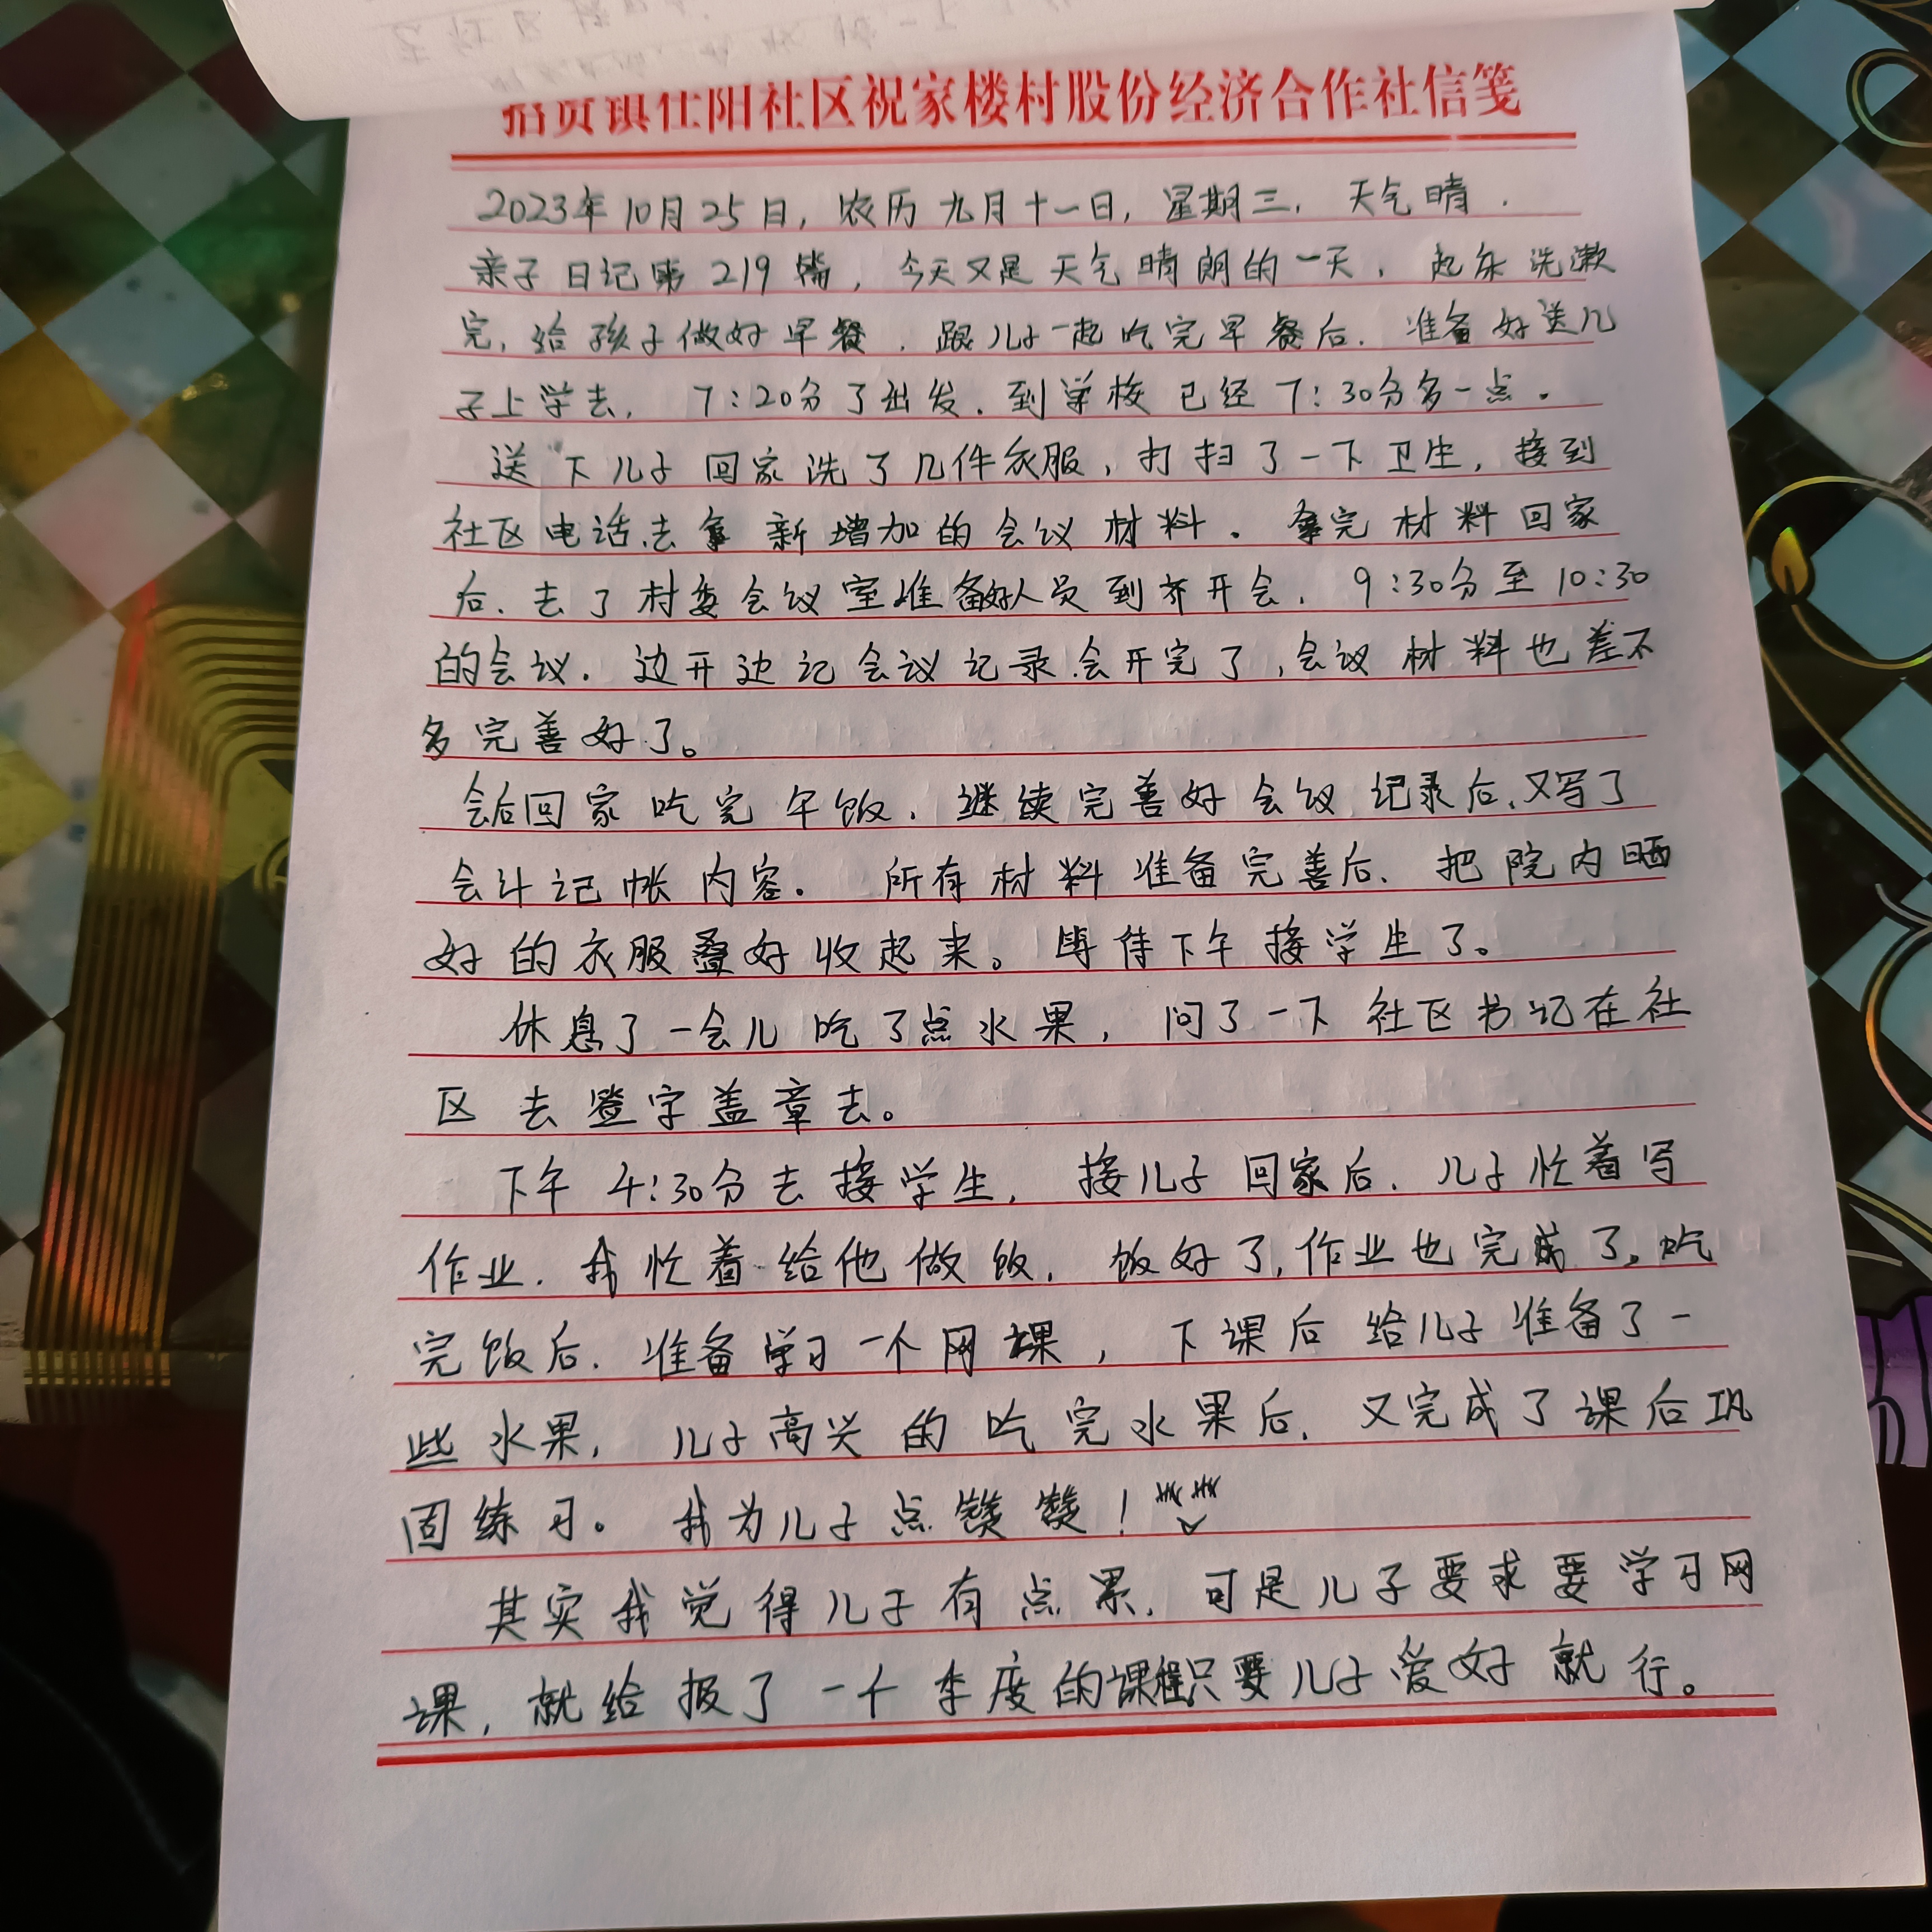 招贤镇仕阳社区祝家楼村股份经济合作社信笺
2023年10月25日，农历九月十一日，星期三，天气晴．
亲子日记第219篇，今天又是天气晴朗的一天，起床洗漱
完，给孩子做好早餐．跟儿子一起吃完早餐后．准备好送儿
子上学去，7:20分了出发．到学校已经7:30分多一点．
送下儿子回家洗了几件衣服，打扫了一下卫生，接到
社区电话．去拿新增加的会议材料．拿完材料回家
后．去了村委会议室准备好人员到齐开会．9:30分至10:30
的会议．边开边记会议记录．会开完了，会议材料也差不
多完善好了。
会后回家吃完午饭．继续完善好会议记录后，又写了
会计记帐内容。所有材料准备完善后．把院内晒
好的衣服叠好收起来。等待下午接学生了。
休息了一会儿吃了点水果，问了一下社区书记在社
区去登字盖章去。
下午4:30分去接学生，接儿子回家后．儿子忙着写
作业．我忙着给他做饭．饭好了，作业也完成了。吃
完饭后．准备学习一个网课，下课后给儿子准备了一
些水果，儿子高兴的吃完水果后．又完成了课后巩
固练习。我为儿子点赞赞！
其实我觉得儿子有点累．可是儿子要求要学习网
课，就给报了一个季度的课程只要儿子爱好就行。